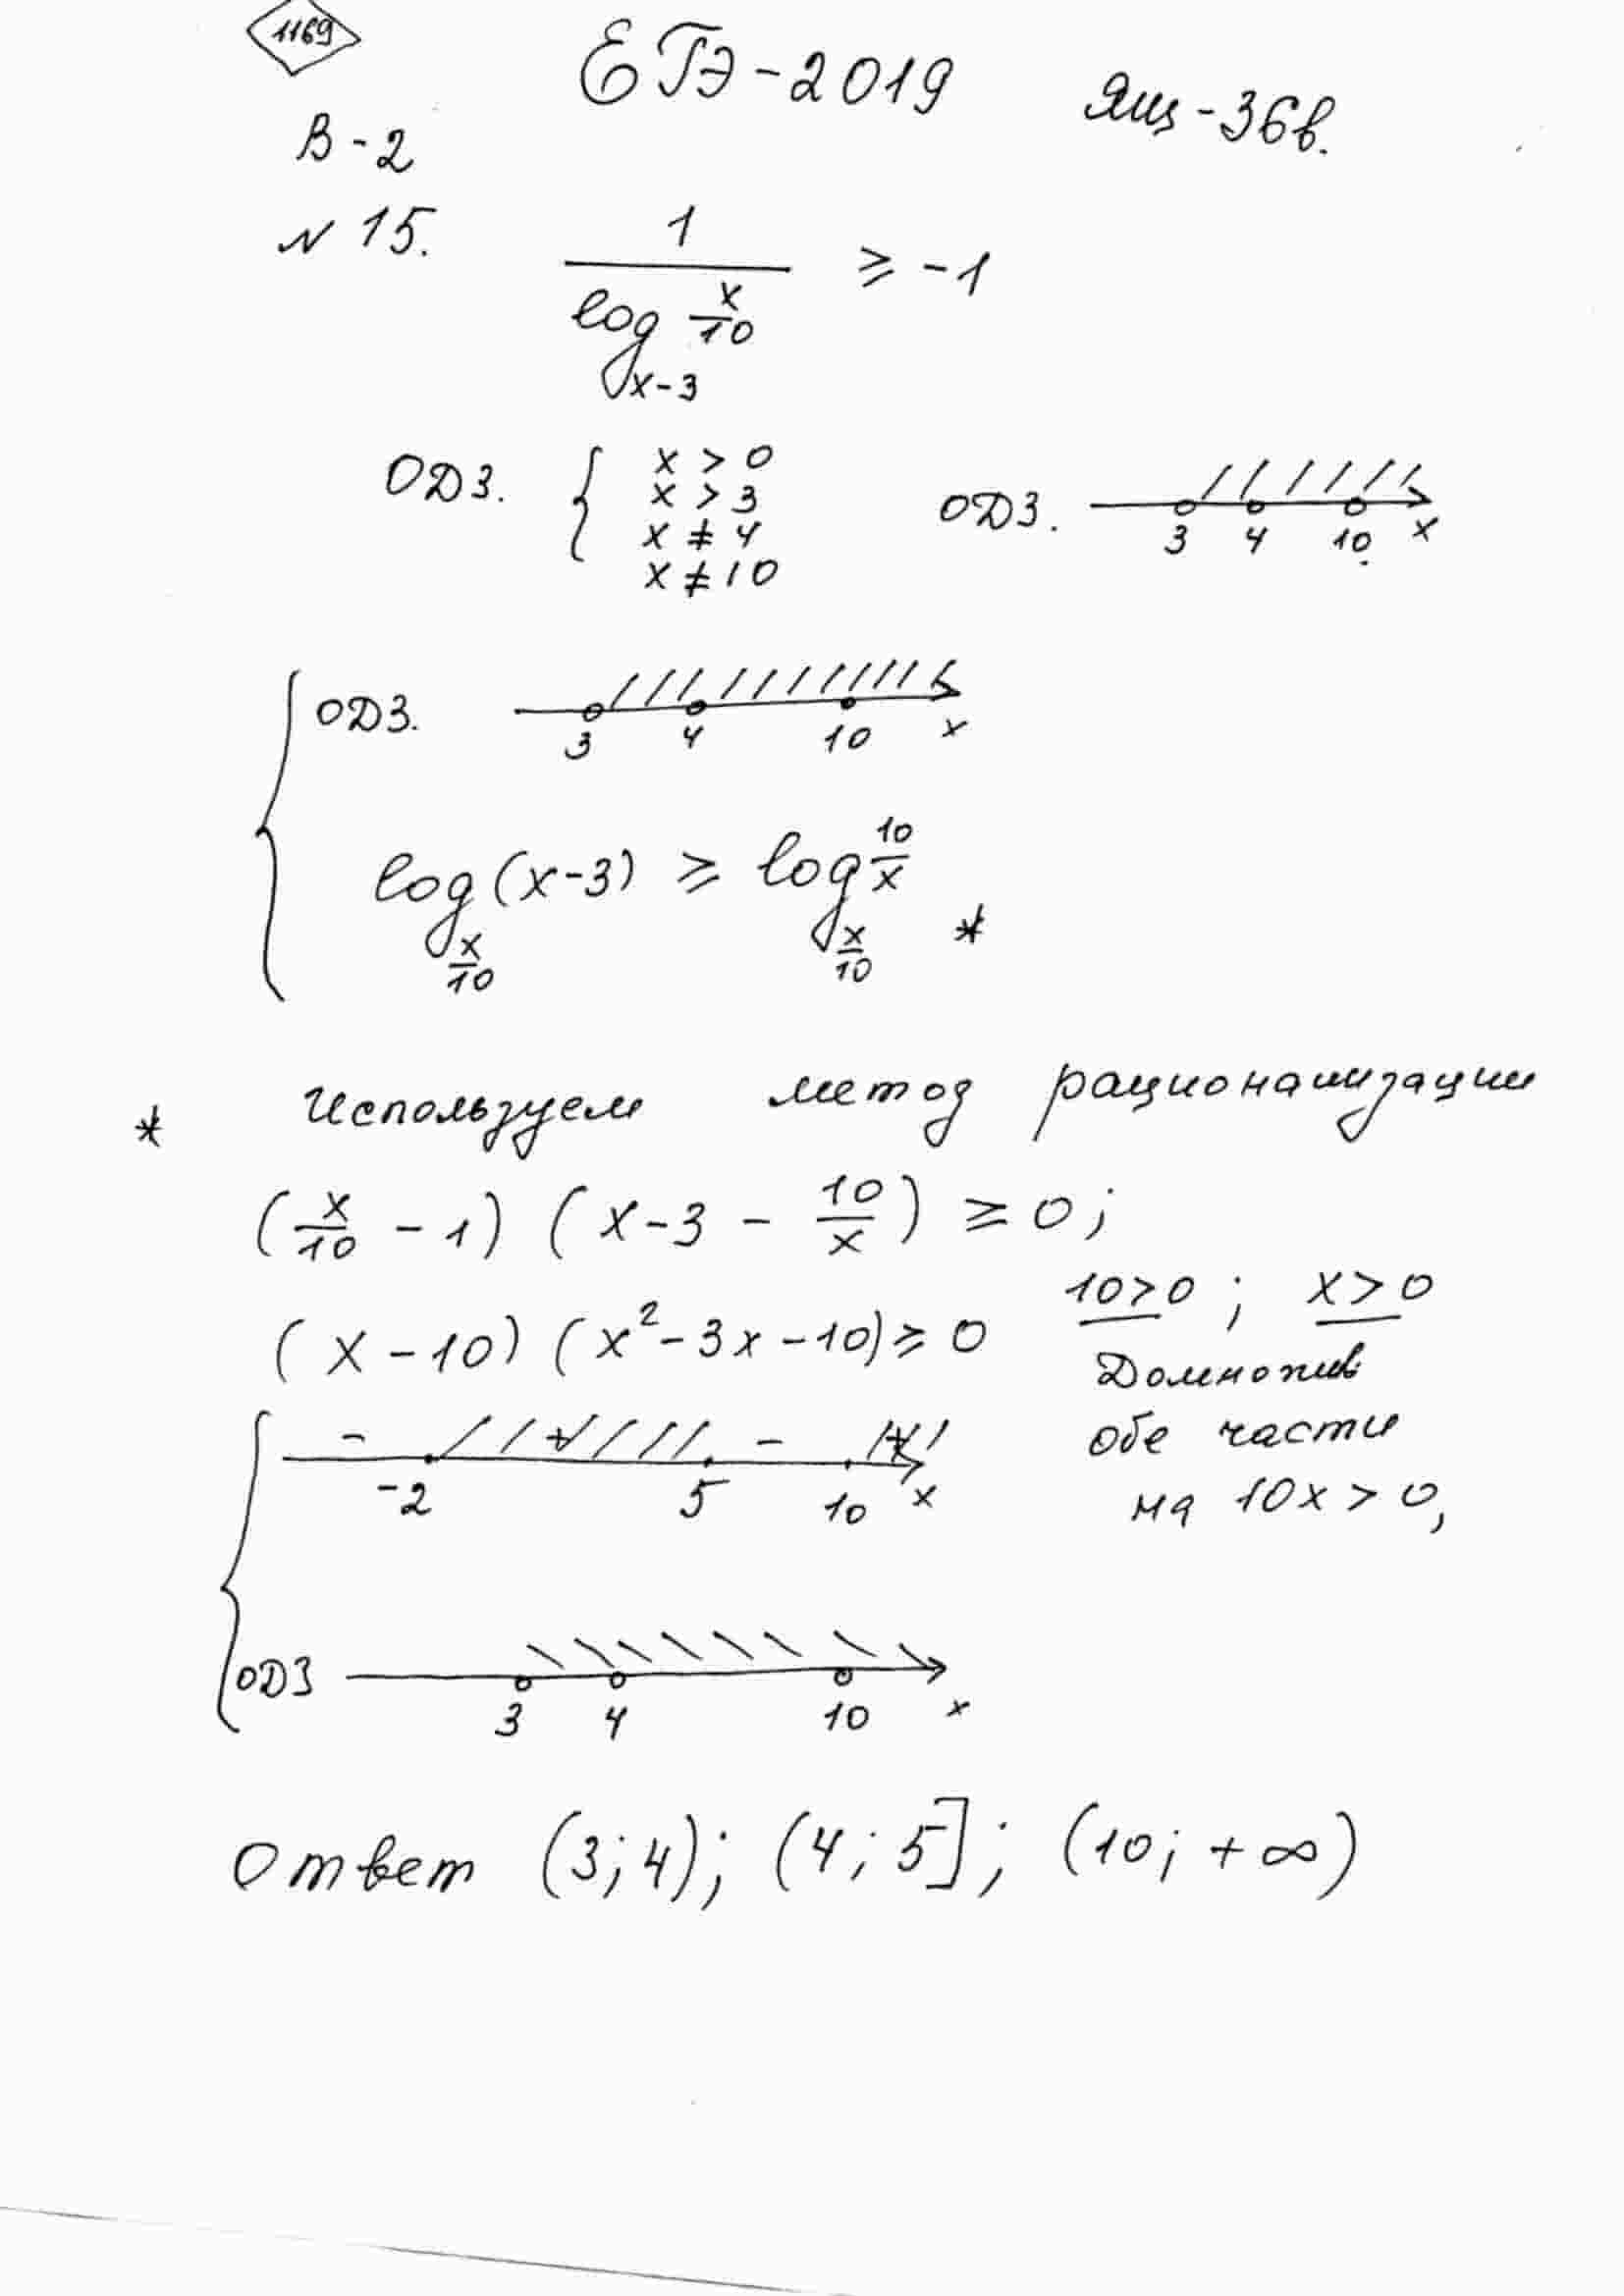 1169
ЕГЭ-2019 Ящ-36в.
В-2
N 15. 1/(log_{x-3} x/10) ≥ -1
ОДЗ. { x > 0
x > 3
x ≠ 4
x ≠ 10
ОДЗ. 3 4 10 x
ОДЗ. 3 4 10 x
log_{x/10} (x-3) ≥ log_{x/10} 10/x *
* Используем метод рационализации
(x/10 - 1) (x-3 - 10/x) ≥ 0;
(x-10) (x²-3x-10) ≥ 0
10>0; x>0
Домножив
обе части
на 10x > 0,
- + - +
-2 5 10 x
ОДЗ 3 4 10 x
Ответ (3;4); (4;5]; (10; +∞)